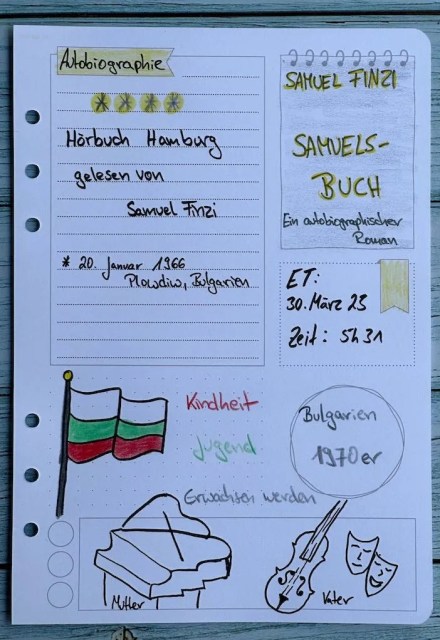 Autobiographie
Hörbuch Hamburg
gelesen von
Samuel Finzi
* 20. Januar 1966
Plowdiw, Bulgarien
SAMUEL FINZI
SAMUELS-
BUCH
Ein autobiographischer
Roman
ET:
30. März 23
Zeit: 5h 31
Kindheit
Jugend
Erwachsen werden
Bulgarien
1970er
Mutter
Vater